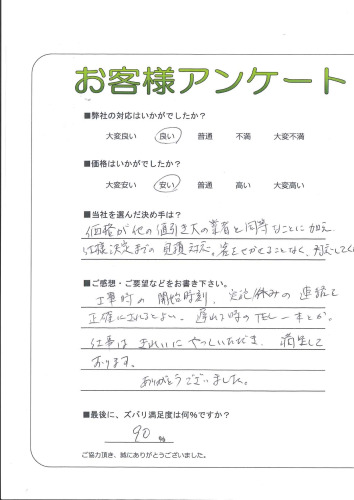 お客様アンケート
■弊社の対応はいかがでしたか？
大変良い 良い 普通 不満 大変不満
■価格はいかがでしたか？
大変安い 安い 普通 高い 大変高い
■当社を選んだ決め手は？
価格が他の値引き大の業者と同等なことに加え
仕様決定までの見積対応。客をせかせることなく、対応してく
■ご感想・ご要望などをお書き下さい。
工事時の開始時刻、定記休みの連絡を
正確にされるとよい。遅れて時のTEL一本とか。
仕事はきれいにやっていただき、満足して
おります。
ありがとうございました。
■最後に、ズバリ満足度は何%ですか？
90 %
ご協力頂き、誠にありがとうございました。